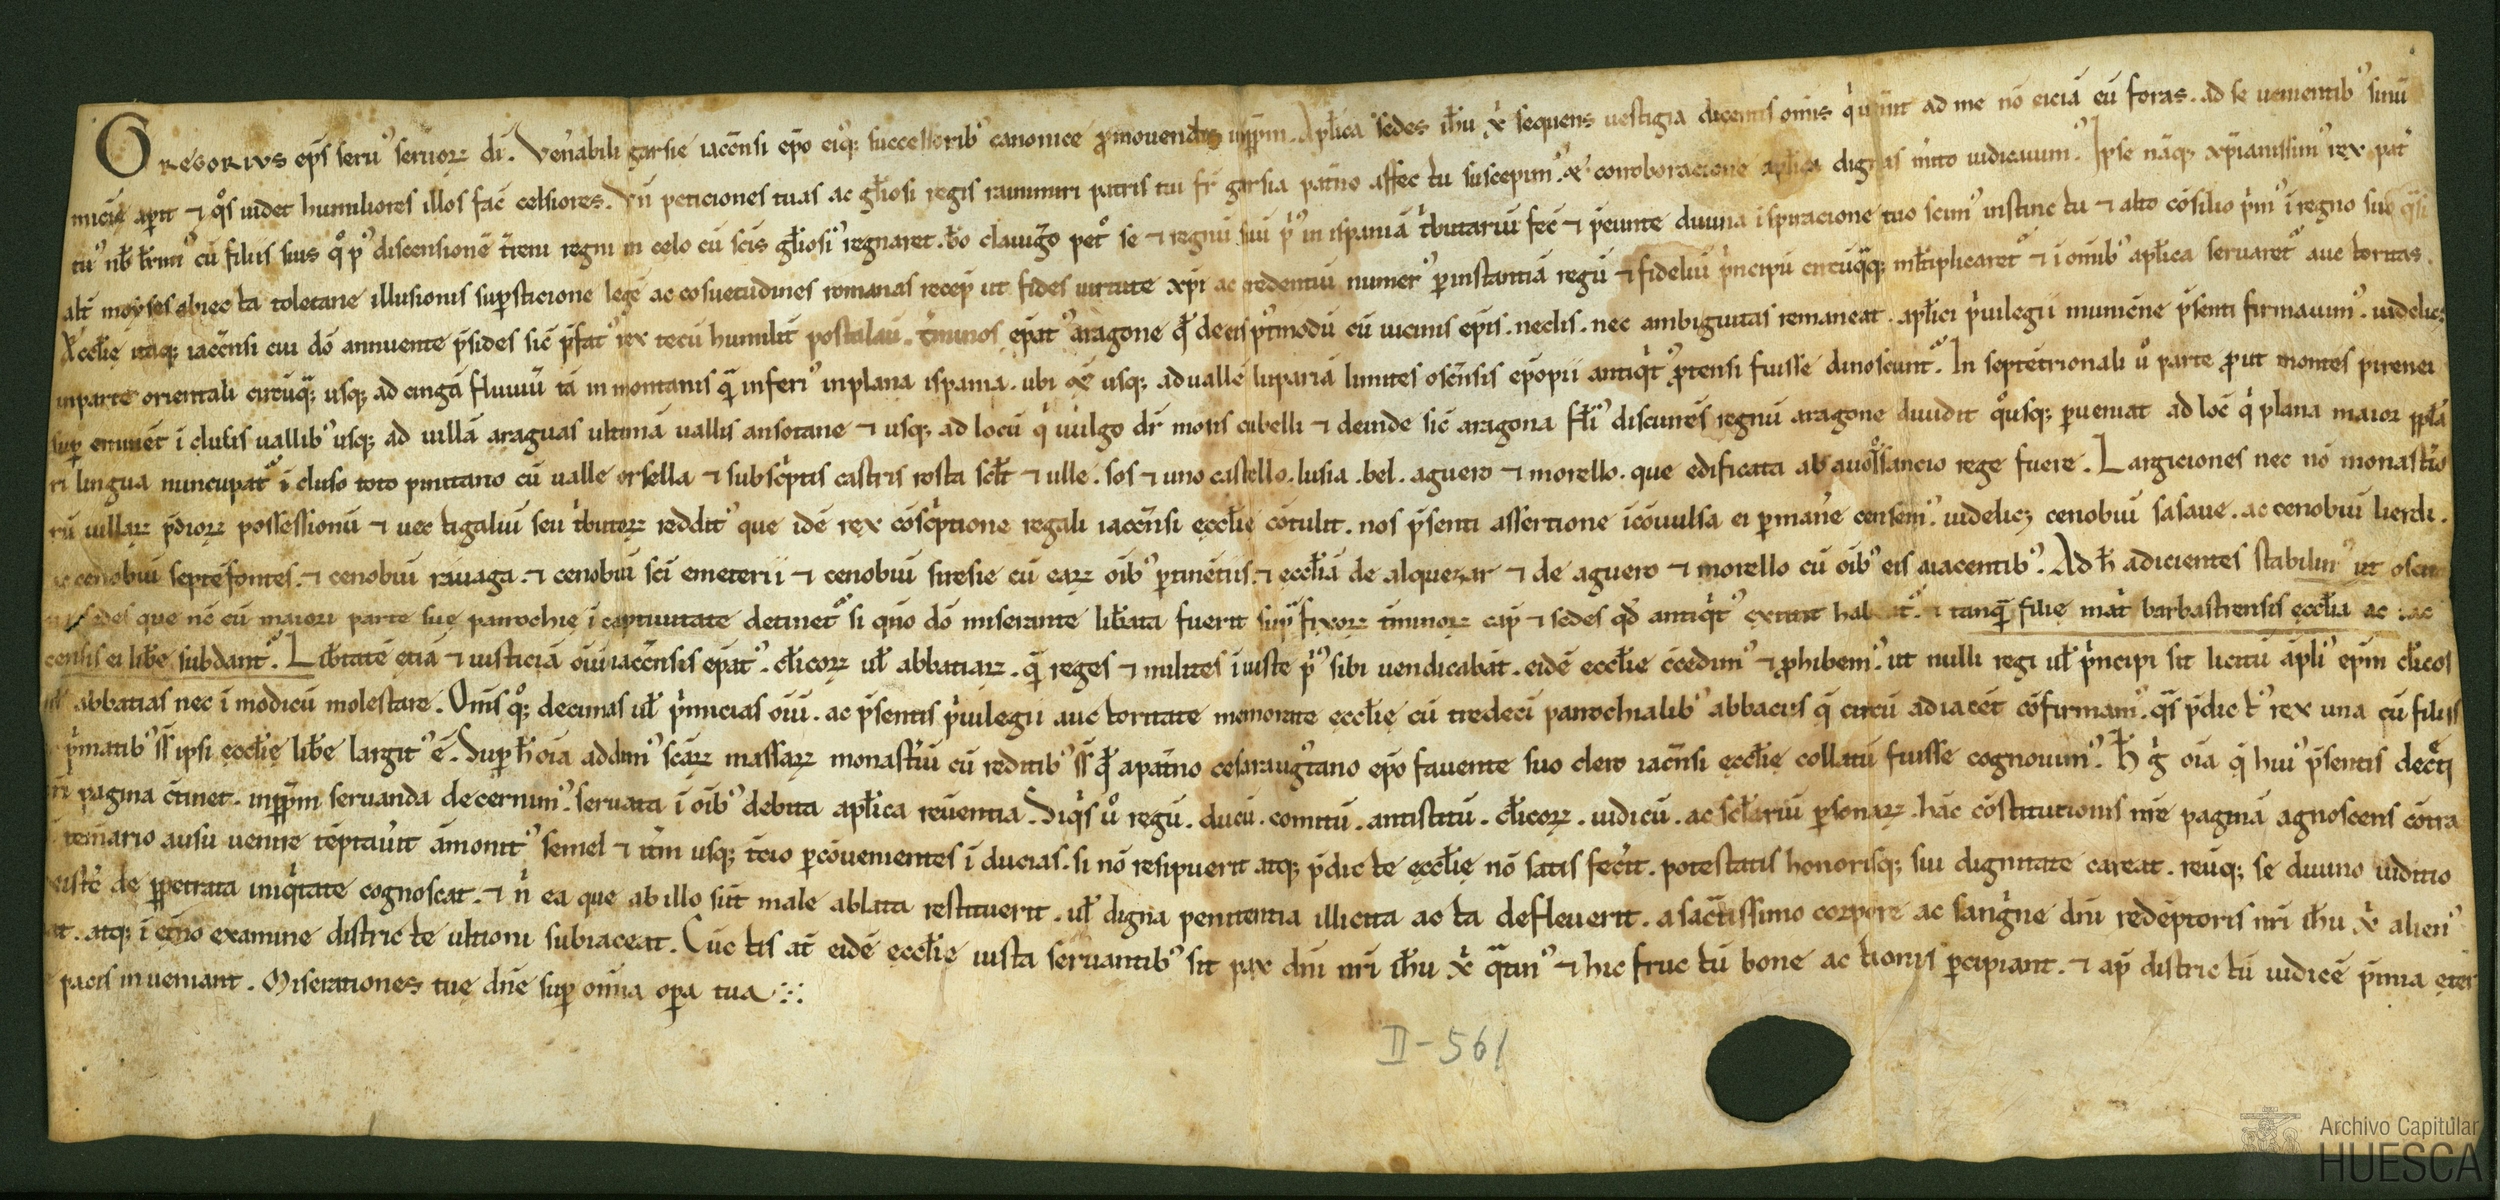 GREGORIVS ep̄s seruꝰ seruoꝝ dī. Venabili garsie iac̄ensi ep̄o eiꝰqꝫ successoribꝰ canonice ꝓmovendis inꝑpm. Apl̄ica sedes ih̄u xp̄i sequens uestigia dicentis om̄is q̇ uenit ad me nō eiciā eū foras. ad se uenientibꝰ sinū
micie aꝑit ⁊ q̊s uidet humiliores illos fac̄ celsiores. Vn̄ peticiones tuas ac gl̄iosi regis ranimiri patris tui fr̄ garsia pat̄no affectu suscepimꝰ. ⁊ corroboracione apl̄ica dignas m̄ito iudicauimꝰ. Ipse nāqꝫ xp̄ianissimꝰ rex pat̄
tuꝰ cū filiis suis q̊ pꝰ discensionē tr̄eni regni in celo cū sc̄is gl̄iosiꝰ regnaret. bō clauig̊o pet̊ se ⁊ regnū suū p̄ꝰ in ispaniā t̄butariū fec̄ ⁊ p̄eunte diuina ispiracione tuo scimꝰ instinctu ⁊ alto cōsilio p̄mꝰ ī regno suo q̄si
alt̄ moyses abiecta toletane illusionis suꝑsticione legē ac cōsuetudines romanas recep̄ ut fides uirtute xp̄i ac credentiū numerꝰ ꝑ instantiā regū ⁊ fideliū p̄ncipū circūq̄qꝫ ml̄tiplicaret᷑ ⁊ ī om̄ibꝰ apl̄ica seruaret᷑ auctoritas.
Æccl̄ię itaqꝫ iac̄ensi cui dō annuente p̄sides sic̄ p̄fatꝰ rex tecū humilit̄ postulaū. t̄minos ep̄atꝰ aragone q̄ de eis ꝑtmodū cū uicinis ep̄is. nec lis. nec ambiguitas remaneat. apl̄ici p̄uilegii munim̄e p̄senti firmauimꝰ. uidelicꝫ
in parte orientali circūq̄qꝫ usqꝫ ad cingā fluuiū tā in montanis q̄ inferiꝰ in plana ispania. ubi usqꝫ ad uallē lupariā limites osc̄ensis ep̄opii antiq̇tꝰ ꝓtensi fuisse dinoscunt᷑. In septētrionali ů parte ꝓut montes pirenei
suꝑ eminēt ī clusis uallibꝰ usqꝫ ad uillā araguas ultimā uallis ansotane ⁊ usqꝫ ad locū q̇ uulgo dr̄ mons cubelli ⁊ deinde sic̄ aragona discurrēs regnū aragone diuidit q̊usqꝫ ꝑueniat ad loc̄ q̇ plana maior
ri lingua nuncupat᷑ ī cluso toto pintano cū ualle orsella ⁊ subsc̄ptis castris rosta scl̄t ⁊ ulle. sos ⁊ uno castello. lusia. bel. aguero ⁊ morello. que edificata ab auo sancio rege fuere. Largiciones nec nō monast̄io
rū uillaꝝ p̄dioꝝ possessionū ⁊ uectigaliū seu t̄butoꝝ redditꝰ que idē rex cōsc̄ptione regali iac̄ensi ęccl̄ię cōtulit. nos p̄senti assertione icōuulsa ei ꝑman̄e censemꝰ. uidelicꝫ cenobiū sasaue. ac cenobiū lierdi.
ac cenobiū septēfontes. ⁊ cenobiū rauaga. ⁊ cenobiū sc̄i emeterii ⁊ cenobiū siresie cū eaꝝ oīb᷒ ꝑtinētus. ⁊ ęccl̄iā de alquezar ⁊ de aguero ⁊ morello cū oīb᷒ eis aiacentibꝰ. Ad h̄ adicientes stabilimꝰ ut oscen
sedes que nc̄ cū maiori parte suę parrochię ī captiuitate detinet᷑ si qn̄o dō miserante libata fuerit sup̄ fixoꝝ t̄minoꝝ cap̄ ⁊ sedes qd̄ antiq̇tꝰ extitit habeat᷑. ⁊ tanq̄ filię mat̄ barbastrensis ęccl̄ia ac iac
censis ei lib̄e subdant᷑. Lib̄tatē etiā ⁊ iusticiā oīuī iac̄ensis ep̄atꝰ. cl̄icoꝝ ul̄ abbatiaꝝ. q̄ reges ⁊ milites iniuste p̄ꝰ sibi uendicabāt. eidē ęccl̄ie c̄cedimꝰ ⁊ ꝓhibemꝰ. ut nulli regi ul̄ p̄ncipi sit licitū āpliꝰ ep̄m cl̄icos
ul̄ abbatias nec ī modicū molestare. Om̄isq̊ꝫ decimas ul̄ p̄micias oīuī. ac p̄sentis p̄uilegii auctoritate memorate ęccl̄ię cū tredecī parrochialibꝰ abbaciis q̄ circū adiacēt cōfirmamꝰ. q̄s p̄dictꝰ rex una cū filiis
p̄matibꝰ ipsi ęccl̄ię lib̄e largitꝰ ē. Suꝑ h̄ oīa addimꝰ scāꝝ massaꝝ monast̄iū cū reditibꝰ q̄ a pat̄no cesaraug̊tano ep̄o favente suo clero iac̄ensi ęccl̄ię collatū fuisse cognouimꝰ. H̄ g̊ oīa q̄ huiꝰ p̄sentis decti
nr̄i pagina c̄tinet. inꝑpm seruanda decernimꝰ. seruata ī oībꝰ debita apl̄ica reuentia. Siq̇s ů regū. ducū. comitū. antistitū. cl̄icoꝝ. iudicū. ac scl̄ariū ꝑsonaꝝ. hāc cōstitutionis nr̄e paginā agnoscens cōtra
temario ausu uenire tēptau̇it āmonitꝰ semel ⁊ it̄m usqꝫ t̄cio ꝑ cōuenientes īducias. si nō resipuerit atqꝫ p̄dicte ęccl̄ię nō satis fec̄it. potestatis honorisqꝫ sui dignitate careat. reūqꝫ se diuino iuditio
existe de ꝑpetrata iniq̇tate cognoscat. ⁊ n̄ ea que ab illo sūt male ablata restituerit. ul̄ digna penitentia illicita acta defleuerit. a sac̄tissimo corpore ac sang̊ne dn̄i redēptoris nr̄i ih̄u xp̄i alienꝰ
at. atqꝫ ī et̄no examine districte ultioni subiaceat. Cūctis at̄ eidē ęccl̄ię iusta seruantibꝰ sit pax dn̄i nr̄i ih̄u xp̄i q̄tinꝰ ⁊ hic fructū bone actionis ꝑcipiant. ⁊ ap̄ districtū iudicē p̄mia ęter
pacis inueniant. Miserationes tuę dn̄e suꝑ omnia oꝑa tua
II-561
Archivo Capitular
HUESCA